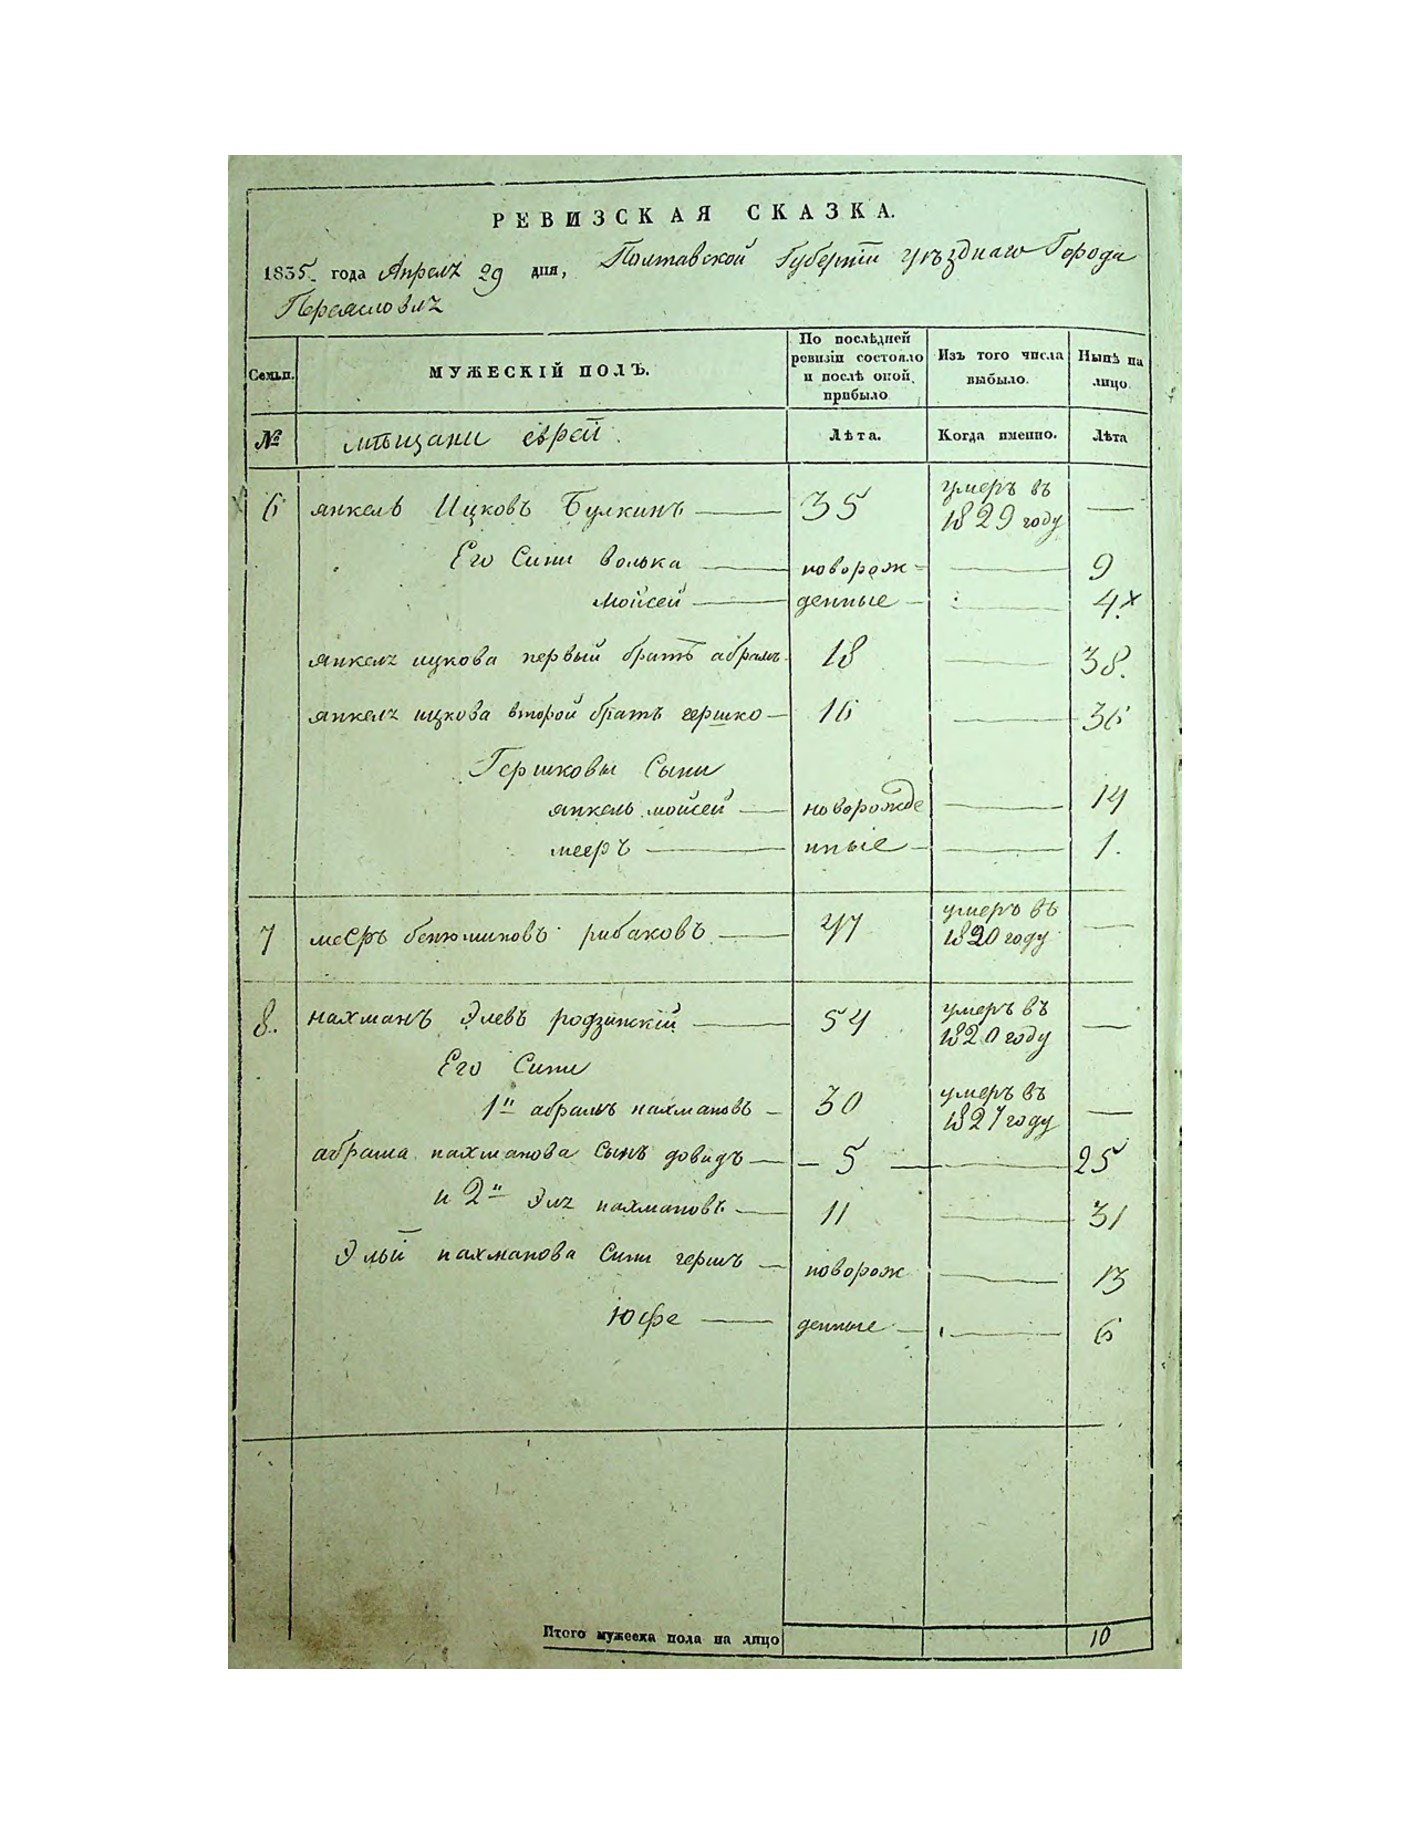 РЕВИЗСКАЯ СКАЗКА.
1835 года Апреля 29 дня, Полтавской Губернїи уѣзднаго Города
Переяславля
Семьи. МУЖЕСКІЙ ПОЛЪ. По послѣдней ревизіи состояло и послѣ оной прибыло Изъ того числа выбыло. Нынѣ на лицо.
№ мѣщани еврей. Лѣта. Когда именно. Лѣта
6 янкель Ицковъ Булкинъ — 35 умеръ въ 1829 году —
Его Сини волька — новорож- — 9
мойсей — денные — — 4.x
янкеля ицкова первый братъ абрамъ 18 — 38.
янкеля ицкова второй братъ гершко — 16 — 36
Гершковы Сыни
янкель мойсей — новорожде — 14
мееръ — нные — — 1.
7 меєръ бенюминовъ рибаковъ — 47 умеръ въ 1820 году —
8. нахманъ Элевъ родзинскій — 54 умеръ въ 1820 году —
Его Сини
1й абрамъ нахмановъ — 30 умеръ въ 1827 году —
абрама нахманова сынъ довидъ — 5 — 25
и 2й Эля нахмановъ — 11 — 31
Элїй нахманова Сини гершъ — новорож — 13
Юфе — денные — — 6
Итого мужеска пола на лицо 10